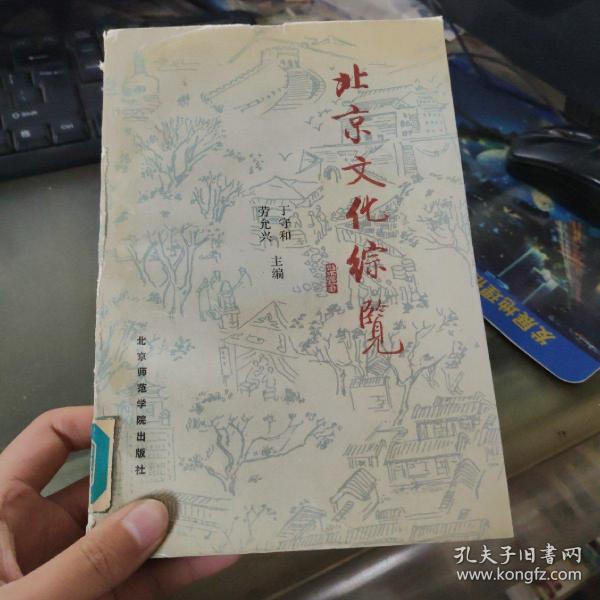 北京文化综览
于守和
劳允兴
主编
北京师范学院出版社
发展地理信
孔夫子旧书网
www.kongfz.com